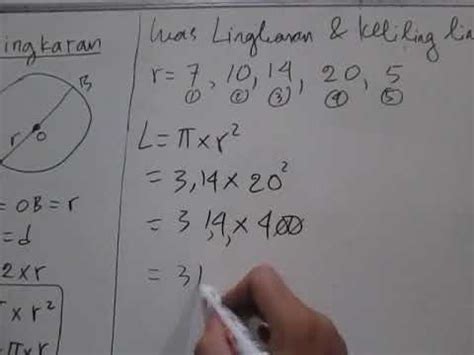 ingkaran
B
r
O
= OB = r
= d
2 x r
x r²
Luas Lingkaran & keliling lin
r = 7, 10, 14, 20, 5
① ② ③ ④ ⑤
L = π x r²
= 3,14 x 20²
= 3 1,4, x 400
= 31